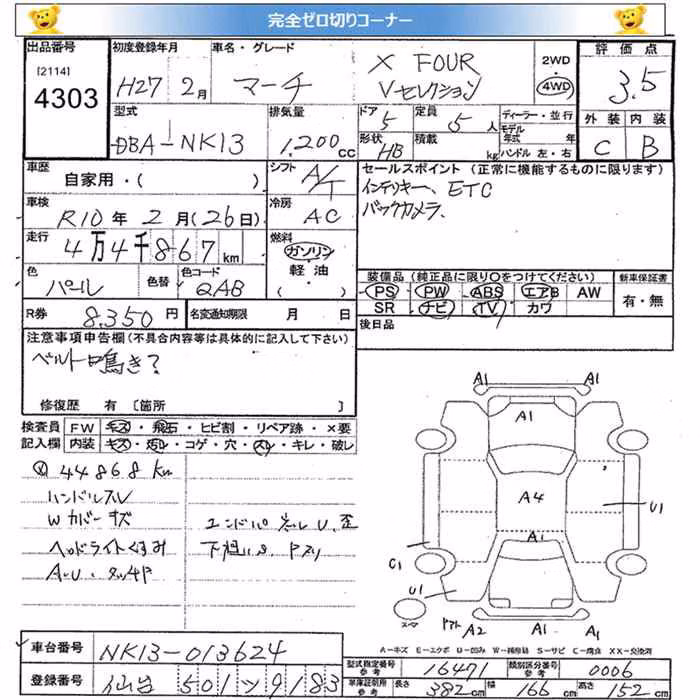 完全ゼロ切りコーナー
出品番号
[2114]
4303
初度登録年月
H27 2月
車名・グレード
マーチ
X FOUR
Vセレクション
2WD
4WD
評価点
3.5
型式
DBA-NK13
排気量
1,200cc
ドア
5
定員
5人
形状
HB
積載
kg
ディーラー・並行
モデル年式 年
ハンドル 左・右
外装 内装
C B
車歴
自家用・( )
シフト
A/T
セールスポイント(正常に機能するものに限ります)
インテリキー、ETC
バックカメラ、
車検
R10年2月(26日)
冷房
AC
走行
4万4千867km
燃料
ガソリン
軽油
( )
色
パール
色替
色コード
QAB
装備品(純正品に限り〇をつけてください)
PS PW ABS エアB AW
SR ナビ TV カワ
新車保証書
有・無
R券
8,350円
名変通知期限 月 日
後日品
注意事項申告欄(不具合内容等は具体的に記入して下さい)
ベルト鳴き?
修復歴 有 [箇所 ]
検査員記入欄
FW キズ・飛石・ヒビ割・リペア跡・×要
内装 キズ・汚レ・コゲ・穴・スレ・キレ・破レ
44868km
ハンドルスレ
Wカバーキズ
ヘッドライトくすみ
AU・タッチP
エンドパネルU、歪
下廻りS、Pスリ
A1
A1
A1
A4
A1
U1
C1
U1
A2
A1
A-キズ E-エクボ U-凹み W-補修跡 S-サビ C-腐食 XX-交換済
車台番号
NK13-013624
登録番号
仙台 501 ツ 9183
型式指定番号 参考
16471
類別区分番号 参考
0006
車庫証明用 参考
長さ 382cm 幅 166cm 高さ 152cm